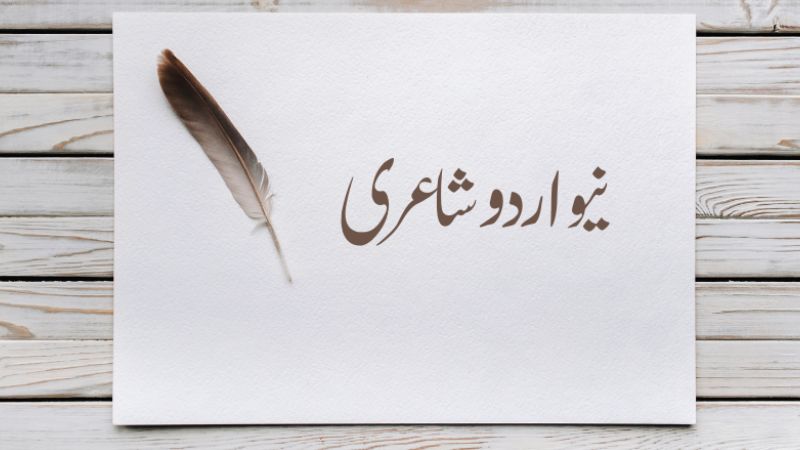 نیو اردو شاعری